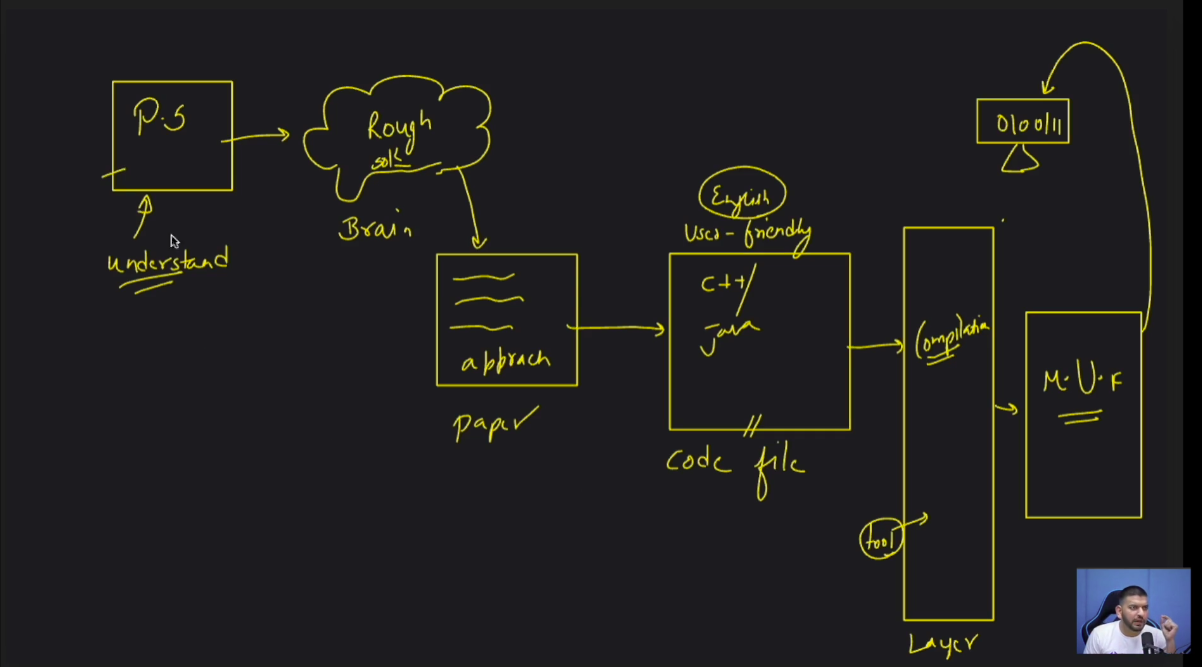 P.S
understand
Rough
soln
Brain
apprach
paper
English
User-friendly
C++/
Java
code file
Compilation
tool
Layer
M.U.F
010011